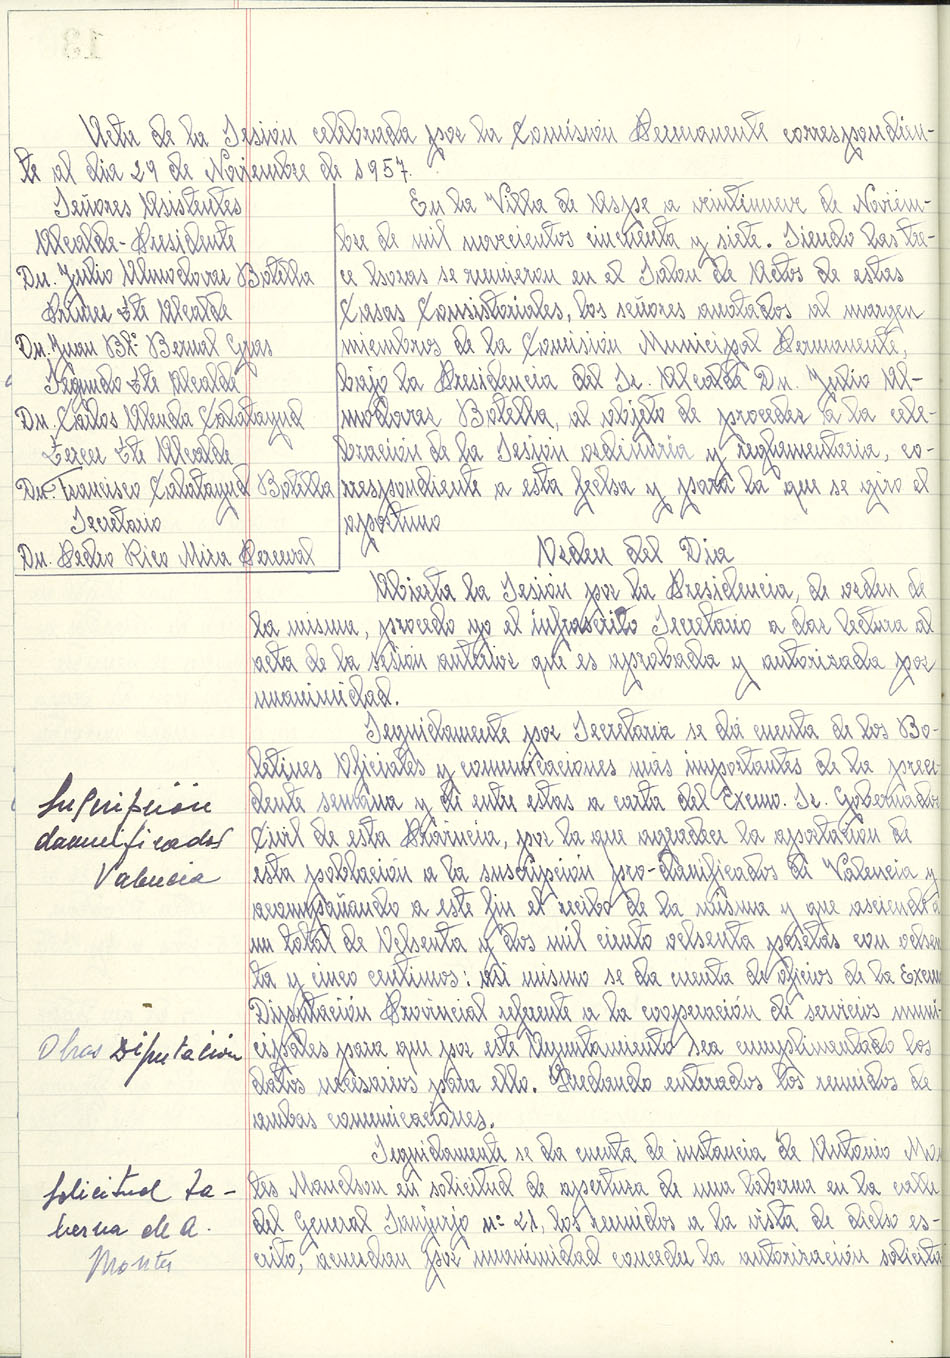 13
Acta de la Sesión celebrada por la Comisión Permanente correspondien-
te al dia 29 de Noviembre de 1957.
Señores Asistentes
Alcalde-Presidente
Dn. Julio Almodovar Botella
Primer Tte Alcalde
Dn. Juan Btª Bernal Gras
Segundo Tte Alcalde
Dn. Carlos Alenda Calatayud
Tercer Tte Alcalde
Dn. Francisco Calatayud Botella
Secretario
Dn. Pedro Rico Mira Perceval
En la Villa de Aspe a veintinueve de Noviem-
bre de mil novecientos cincuenta y siete. Siendo las tre-
ce horas se reunieron en el Salon de Actos de estas
Casas Consistoriales, los señores anotados al margen
miembros de la Comisión Municipal Permanente,
bajo la Presidencia del Sr. Alcalde Dn. Julio Al-
modovar Botella, al objeto de proceder a la cele-
bración de la Sesión ordinaria y reglamentaria, co-
rrespondiente a esta fecha y para la que se giro el
oportuno
Orden del Dia
Abierta la Sesión por la Presidencia, de orden de
la misma, procedo yo el infrascrito Secretario a dar lectura al
acta de la sesión anterior que es aprobada y autorizada por
unanimidad.
Seguidamente por Secretaria se dá cuenta de los Bo-
letines Oficiales y comunicaciones más importantes de la prece-
dente semana y de entre estas a carta del Excmo. Sr. Gobernador
Civil de esta Provincia, por la que agradece la aportación de
esta población a la suscripción pro-damificados de Valencia y
acompañando a este fin el recibo de la misma y que asciende a
un total de Ochenta y dos mil ciento ochenta pesetas con ochen-
ta y cinco centimos: asi mismo se da cuenta de oficios de la Excma
Diputación Provincial referente a la cooperación de servicios muni-
cipales para que por este Ayuntamiento sea cumplimentado los
datos necesarios para ello. Quedando enterados los reunidos de
ambas comunicaciones.
Seguidamente se da cuenta de instancia de Antonio Mon
tes en solicitud de apertura de una taberna en la calle
del General Sanjurjo nº 21, los reunidos a la vista de dicho es-
crito, acuerdan por unanimidad conceder la autorización solicita
Suscripción
damnificados
Valencia
Obras Diputación
Solicitud ta-
berna de A.
Montes